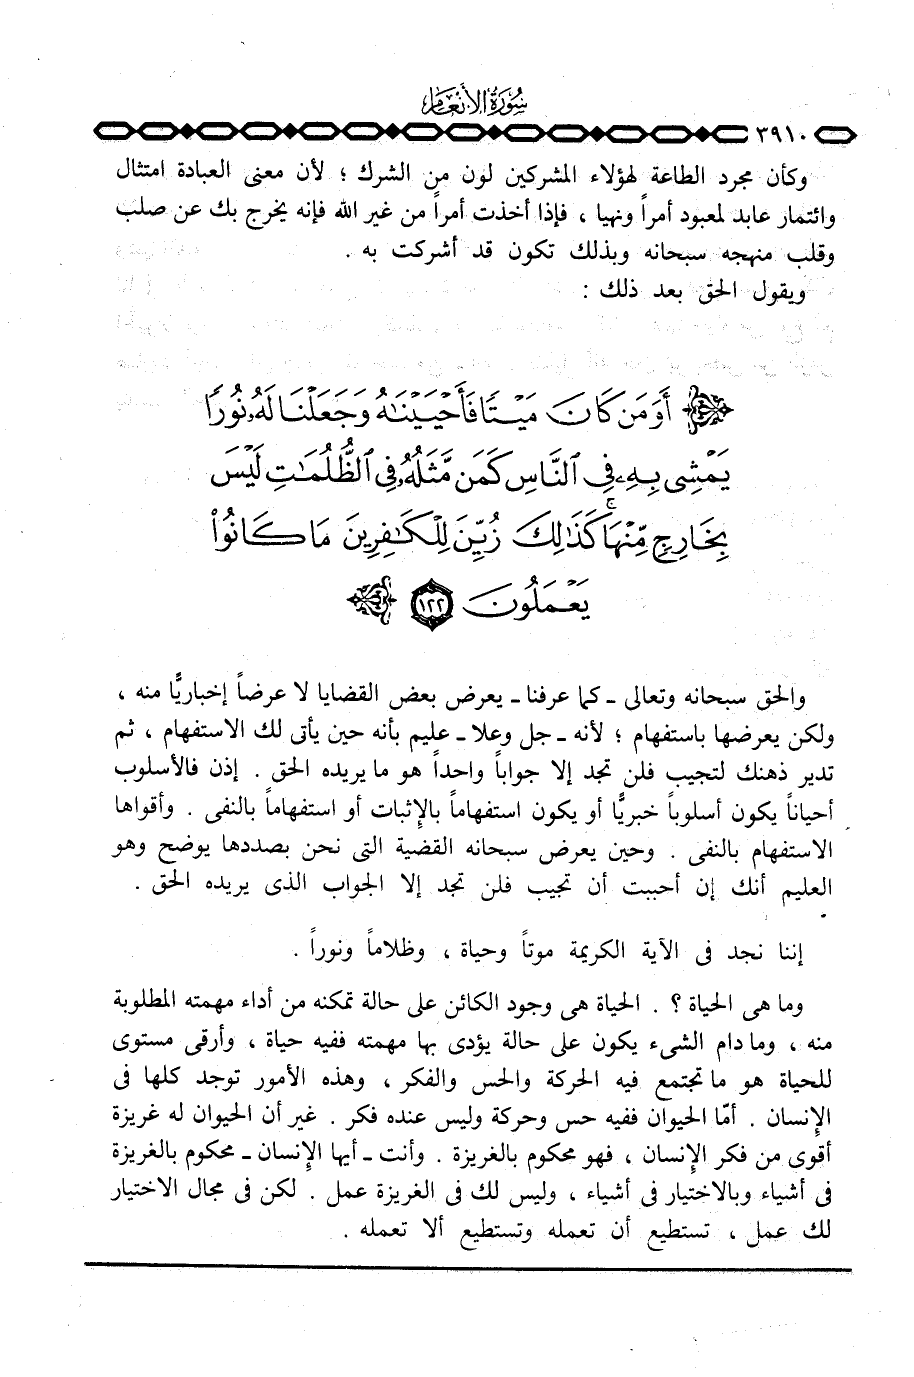 سورة الأنعام
٣٩١٠
وكأن مجرد الطاعة لهؤلاء المشركين لون من الشرك ؛ لأن معنى العبادة امتثال
وائتمار عابد لمعبود أمراً ونهيا ، فإذا أخذت أمراً من غير الله فإنه يخرج بك عن صلب
وقلب منهجه سبحانه وبذلك تكون قد أشركت به .
ويقول الحق بعد ذلك :
أَوَمَن كَانَ مَيْتًا فَأَحْيَيْنَٰهُ وَجَعَلْنَا لَهُۥ نُورًا
يَمْشِى بِهِۦ فِى ٱلنَّاسِ كَمَن مَّثَلُهُۥ فِى ٱلظُّلُمَٰتِ لَيْسَ
بِخَارِجٍ مِّنْهَا ۚ كَذَٰلِكَ زُيِّنَ لِلْكَٰفِرِينَ مَا كَانُوا۟
يَعْمَلُونَ ١٢٢
والحق سبحانه وتعالى ـ كما عرفنا ـ يعرض بعض القضايا لا عرضاً إخباريًّا منه ،
ولكن يعرضها باستفهام ؛ لأنه ـ جل وعلا ـ عليم بأنه حين يأتى لك الاستفهام ، ثم
تدير ذهنك لتجيب فلن تجد إلا جواباً واحداً هو ما يريده الحق . إذن فالأسلوب
أحياناً يكون أسلوباً خبريًّا أو يكون استفهاماً بالإثبات أو استفهاماً بالنفى . وأقواها
الاستفهام بالنفى . وحين يعرض سبحانه القضية التى نحن بصددها يوضح وهو
العليم أنك إن أحببت أن تجيب فلن تجد إلا الجواب الذى يريده الحق .
إننا نجد فى الآية الكريمة موتاً وحياة ، وظلاماً ونوراً .
وما هى الحياة ؟ . الحياة هى وجود الكائن على حالة تمكنه من أداء مهمته المطلوبة
منه ، وما دام الشىء يكون على حالة يؤدى بها مهمته ففيه حياة ، وأرقى مستوى
للحياة هو ما تجتمع فيه الحركة والحس والفكر ، وهذه الأمور توجد كلها فى
الإنسان . أمّا الحيوان ففيه حس وحركة وليس عنده فكر . غير أن الحيوان له غريزة
أقوى من فكر الإنسان ، فهو محكوم بالغريزة . وأنت ـ أيها الإنسان ـ محكوم بالغريزة
فى أشياء وبالاختيار فى أشياء ، وليس لك فى الغريزة عمل . لكن فى مجال الاختيار
لك عمل ، تستطيع أن تعمله وتستطيع ألا تعمله .